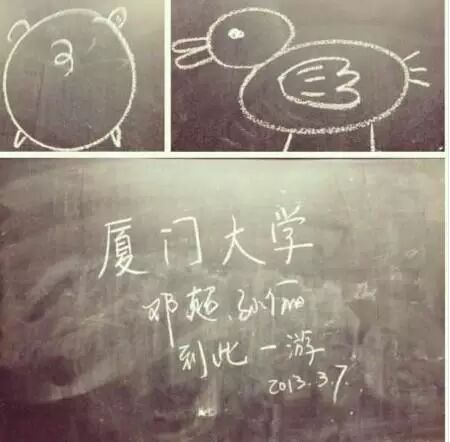 厦门大学
邓超、孙俪
到此一游
2013.3.7.